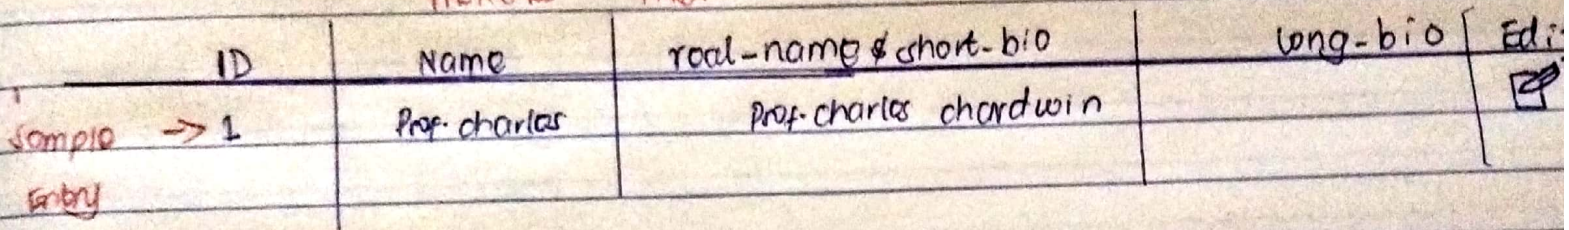 ID Name real-name & short-bio long-bio Edi
Sample -> 1 Prof. charles Prof. charles chardwin
Entry